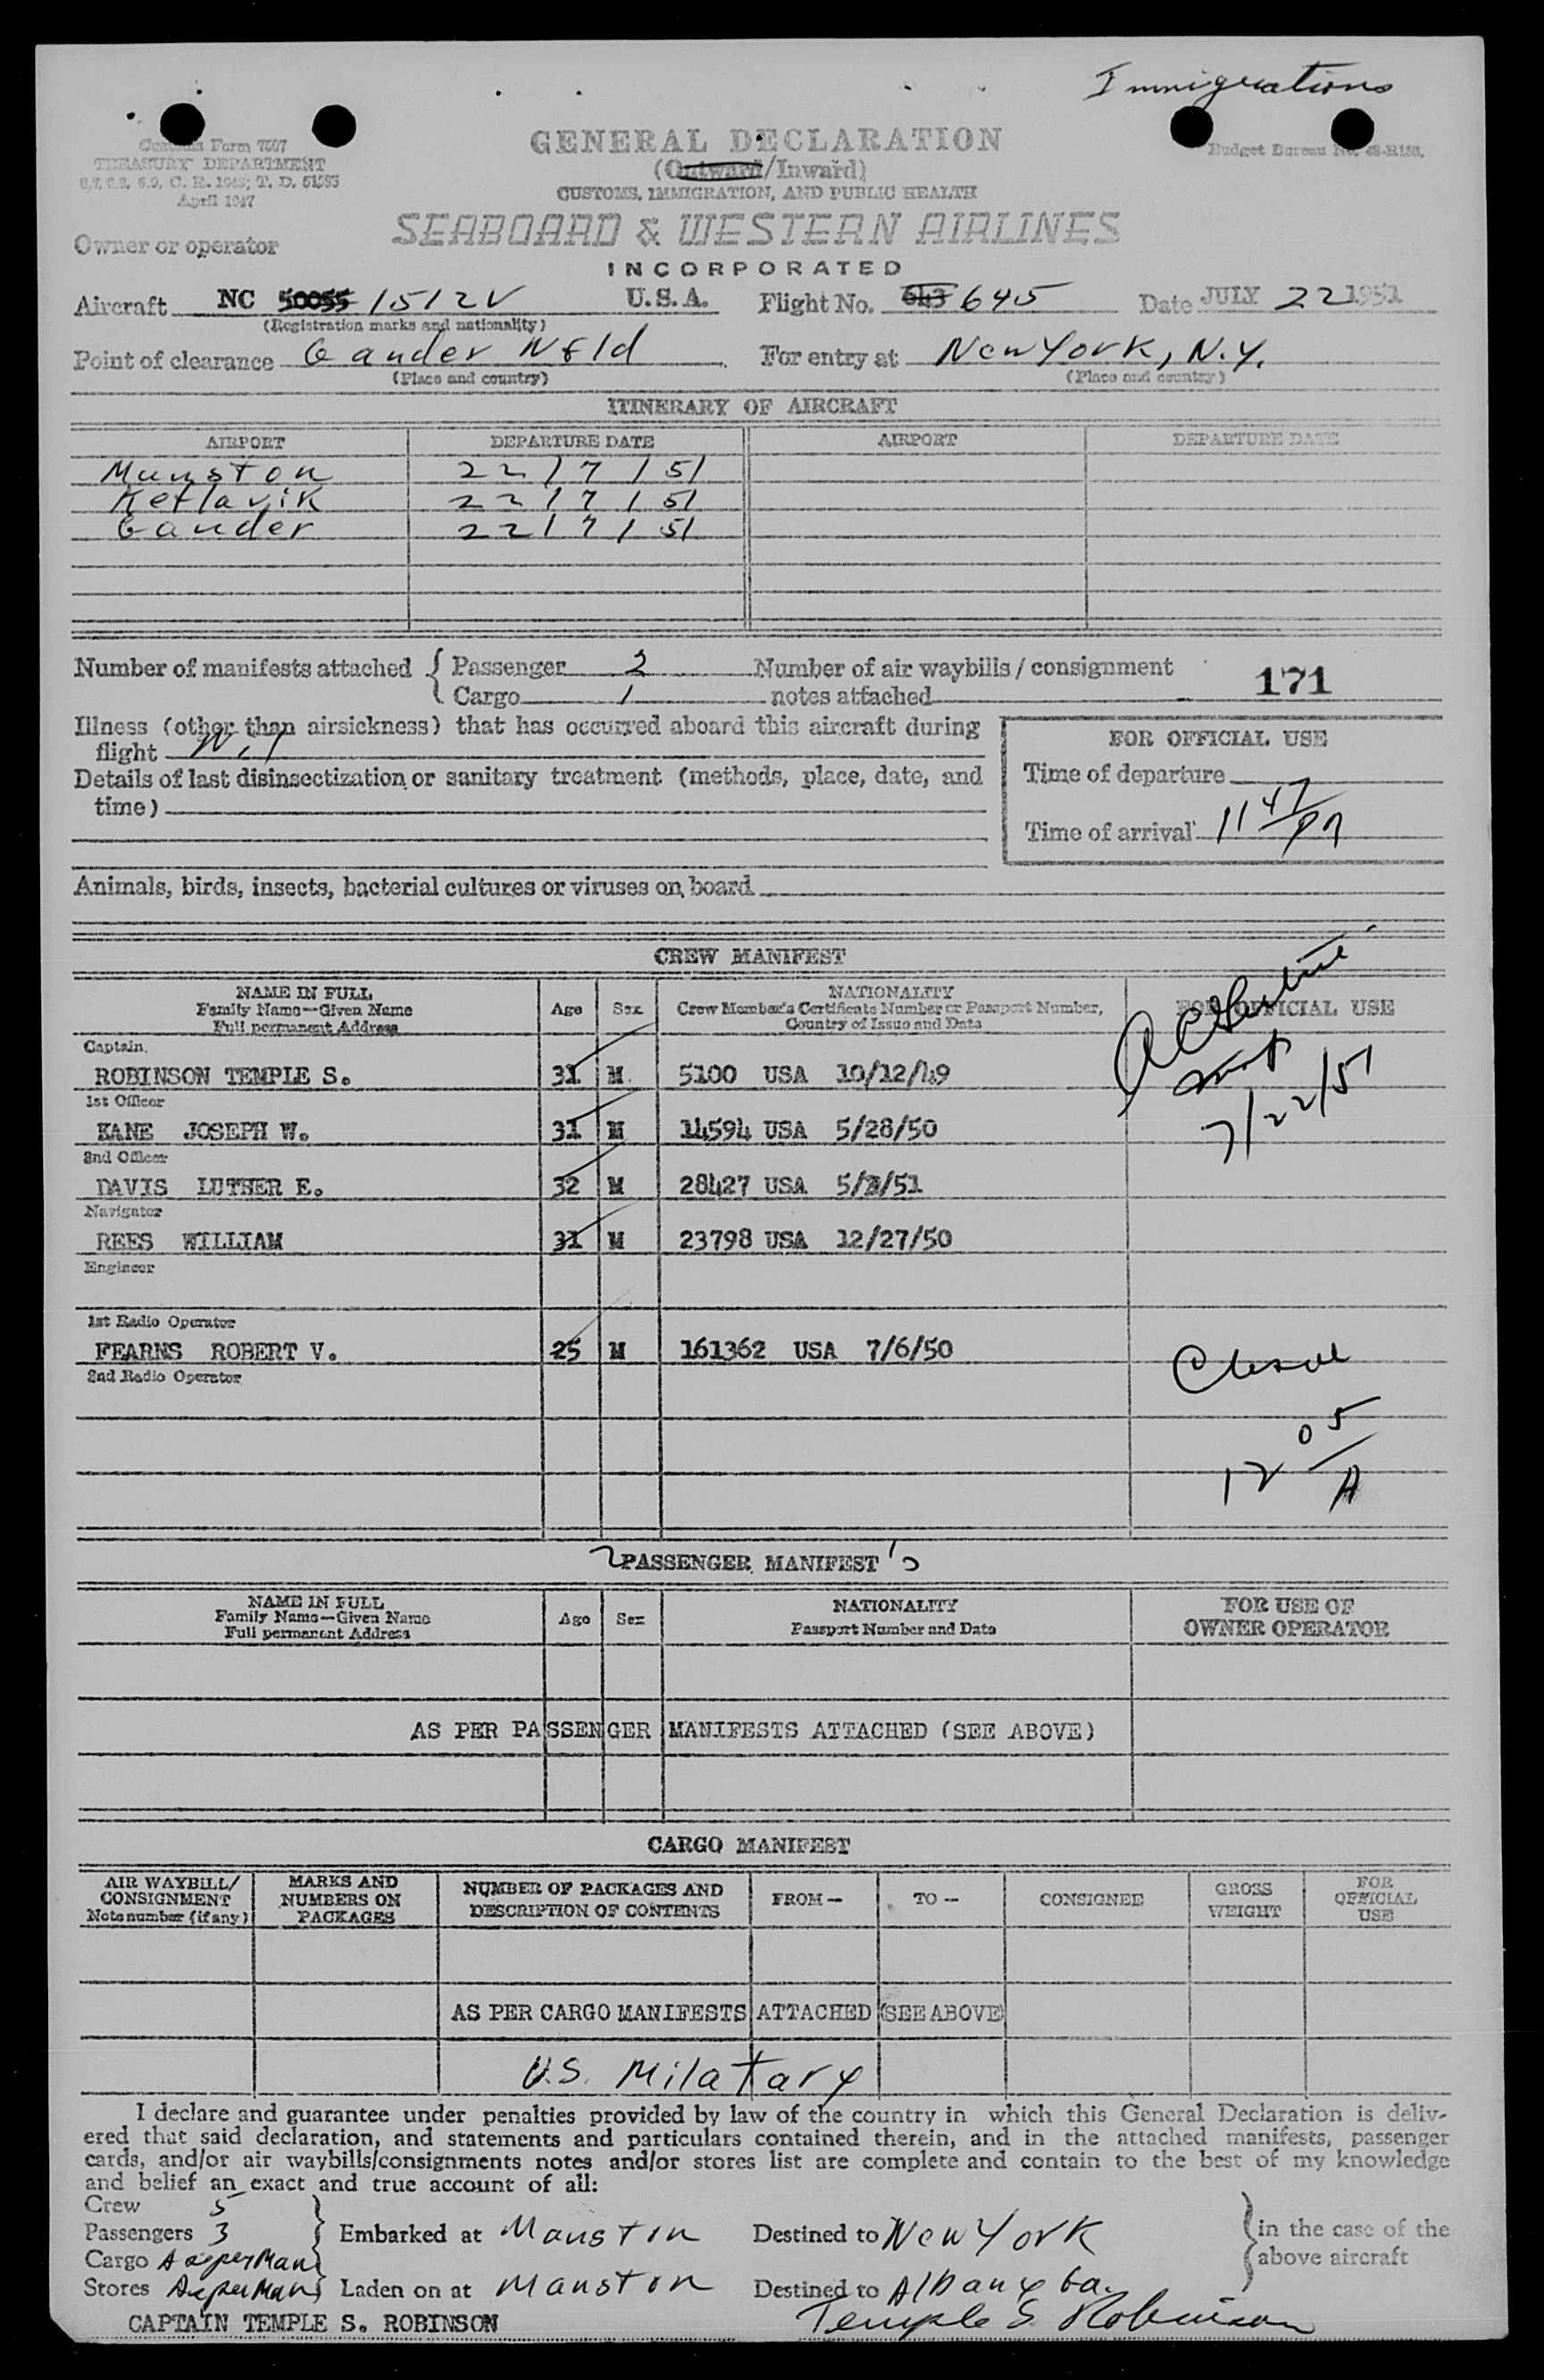 Immigrations
Customs Form 7507
TREASURY DEPARTMENT
April 1947
Budget Bureau No.
GENERAL DECLARATION
(Outward/Inward)
CUSTOMS, IMMIGRATION, AND PUBLIC HEALTH
Owner or operator SEABOARD & WESTERN AIRLINES
INCORPORATED
Aircraft NC 50055 1512V U.S.A. Flight No. 643 645 Date JULY 22 1951
(Registration marks and nationality)
Point of clearance Gander Nfld For entry at New York, N.Y.
(Place and country) (Place and country)
ITINERARY OF AIRCRAFT
AIRPORT DEPARTURE DATE AIRPORT DEPARTURE DATE
Manston 22/7/51
Keflavik 22/7/51
Gander 22/7/51
Number of manifests attached { Passenger 2 Number of air waybills / consignment
Cargo 1 notes attached 171
Illness (other than airsickness) that has occurred aboard this aircraft during
flight Nil
Details of last disinsectization or sanitary treatment (methods, place, date, and
time)
FOR OFFICIAL USE
Time of departure
Time of arrival 11 47
Animals, birds, insects, bacterial cultures or viruses on board
CREW MANIFEST
NAME IN FULL
Family Name—Given Name
Full permanent Address
Age Sex
NATIONALITY
Crew Member's Certificate Number or Passport Number,
Country of Issue and Date
FOR OFFICIAL USE
Captain
ROBINSON TEMPLE S. 31 M 5100 USA 10/12/49
7/22/51
1st Officer
KANE JOSEPH W. 31 M 14594 USA 5/28/50
2nd Officer
DAVIS LUTHER E. 32 M 28427 USA 5/3/51
Navigator
REES WILLIAM 31 M 23798 USA 12/27/50
Engineer
1st Radio Operator
FEARNS ROBERT V. 25 M 161362 USA 7/6/50
2nd Radio Operator
12 05
A
2 PASSENGER MANIFEST's
NAME IN FULL
Family Name—Given Name
Full permanent Address
Age Sex
NATIONALITY
Passport Number and Date
FOR USE OF
OWNER OPERATOR
AS PER PASSENGER MANIFESTS ATTACHED (SEE ABOVE)
CARGO MANIFEST
AIR WAYBILL/
CONSIGNMENT
Note number (if any)
MARKS AND
NUMBERS ON
PACKAGES
NUMBER OF PACKAGES AND
DESCRIPTION OF CONTENTS
FROM—
TO—
CONSIGNEE
GROSS
WEIGHT
FOR
OFFICIAL
USE
AS PER CARGO MANIFESTS ATTACHED (SEE ABOVE)
U.S. Milatary
I declare and guarantee under penalties provided by law of the country in which this General Declaration is deliv-
ered that said declaration, and statements and particulars contained therein, and in the attached manifests, passenger
cards, and/or air waybills/consignments notes and/or stores list are complete and contain to the best of my knowledge
and belief an exact and true account of all:
Crew 5
Passengers 3 Embarked at Manston Destined to New York in the case of the
Cargo As per Man above aircraft
Stores As per Man Laden on at Manston Destined to Albany Ga.
CAPTAIN TEMPLE S. ROBINSON Temple S. Robinson